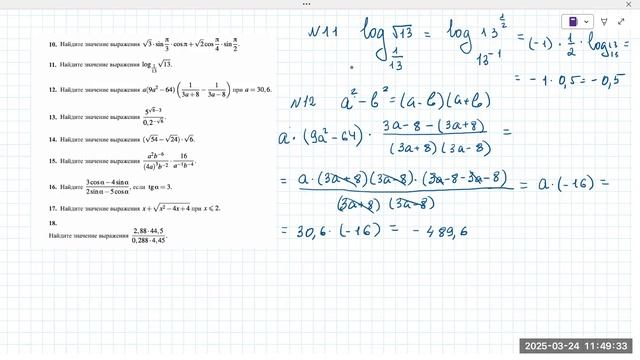 10. Найдите значение выражения √3·sin π/3·cosπ+√2cos π/4·sin π/2.
11. Найдите значение выражения log_{1/13} √13.
12. Найдите значение выражения a(9a²−64)(1/(3a+8) − 1/(3a−8)) при a = 30,6.
13. Найдите значение выражения
14. Найдите значение выражения (√54−√24)·√6.
15. Найдите значение выражения a²b⁻⁶/((4a)³b⁻²) · 16/(a⁻³b⁻⁴).
16. Найдите значение выражения (3cosα−4sinα)/(2sinα−5cosα), если tgα = 3.
17. Найдите значение выражения x+√(x²−4x+4) при x ⩽ 2.
18.
Найдите значение выражения (2,88·44,5)/(0,288·4,45).
№11 log_{1/13} √13 = log_{13⁻¹} 13^{1/2} = (-1)·1/2·log_{13} 13 =
= -1·0,5 = -0,5
№12 a²-b² = (a-b)(a+b)
a·(9a²-64)·(3a-8-(3a+8))/((3a+8)(3a-8)) =
= a·(3a+8)(3a-8)·(3a-8-3a-8)/((3a+8)(3a-8)) = a·(-16) =
= 30,6·(-16) = -489,6
2025-03-24 11:49:33